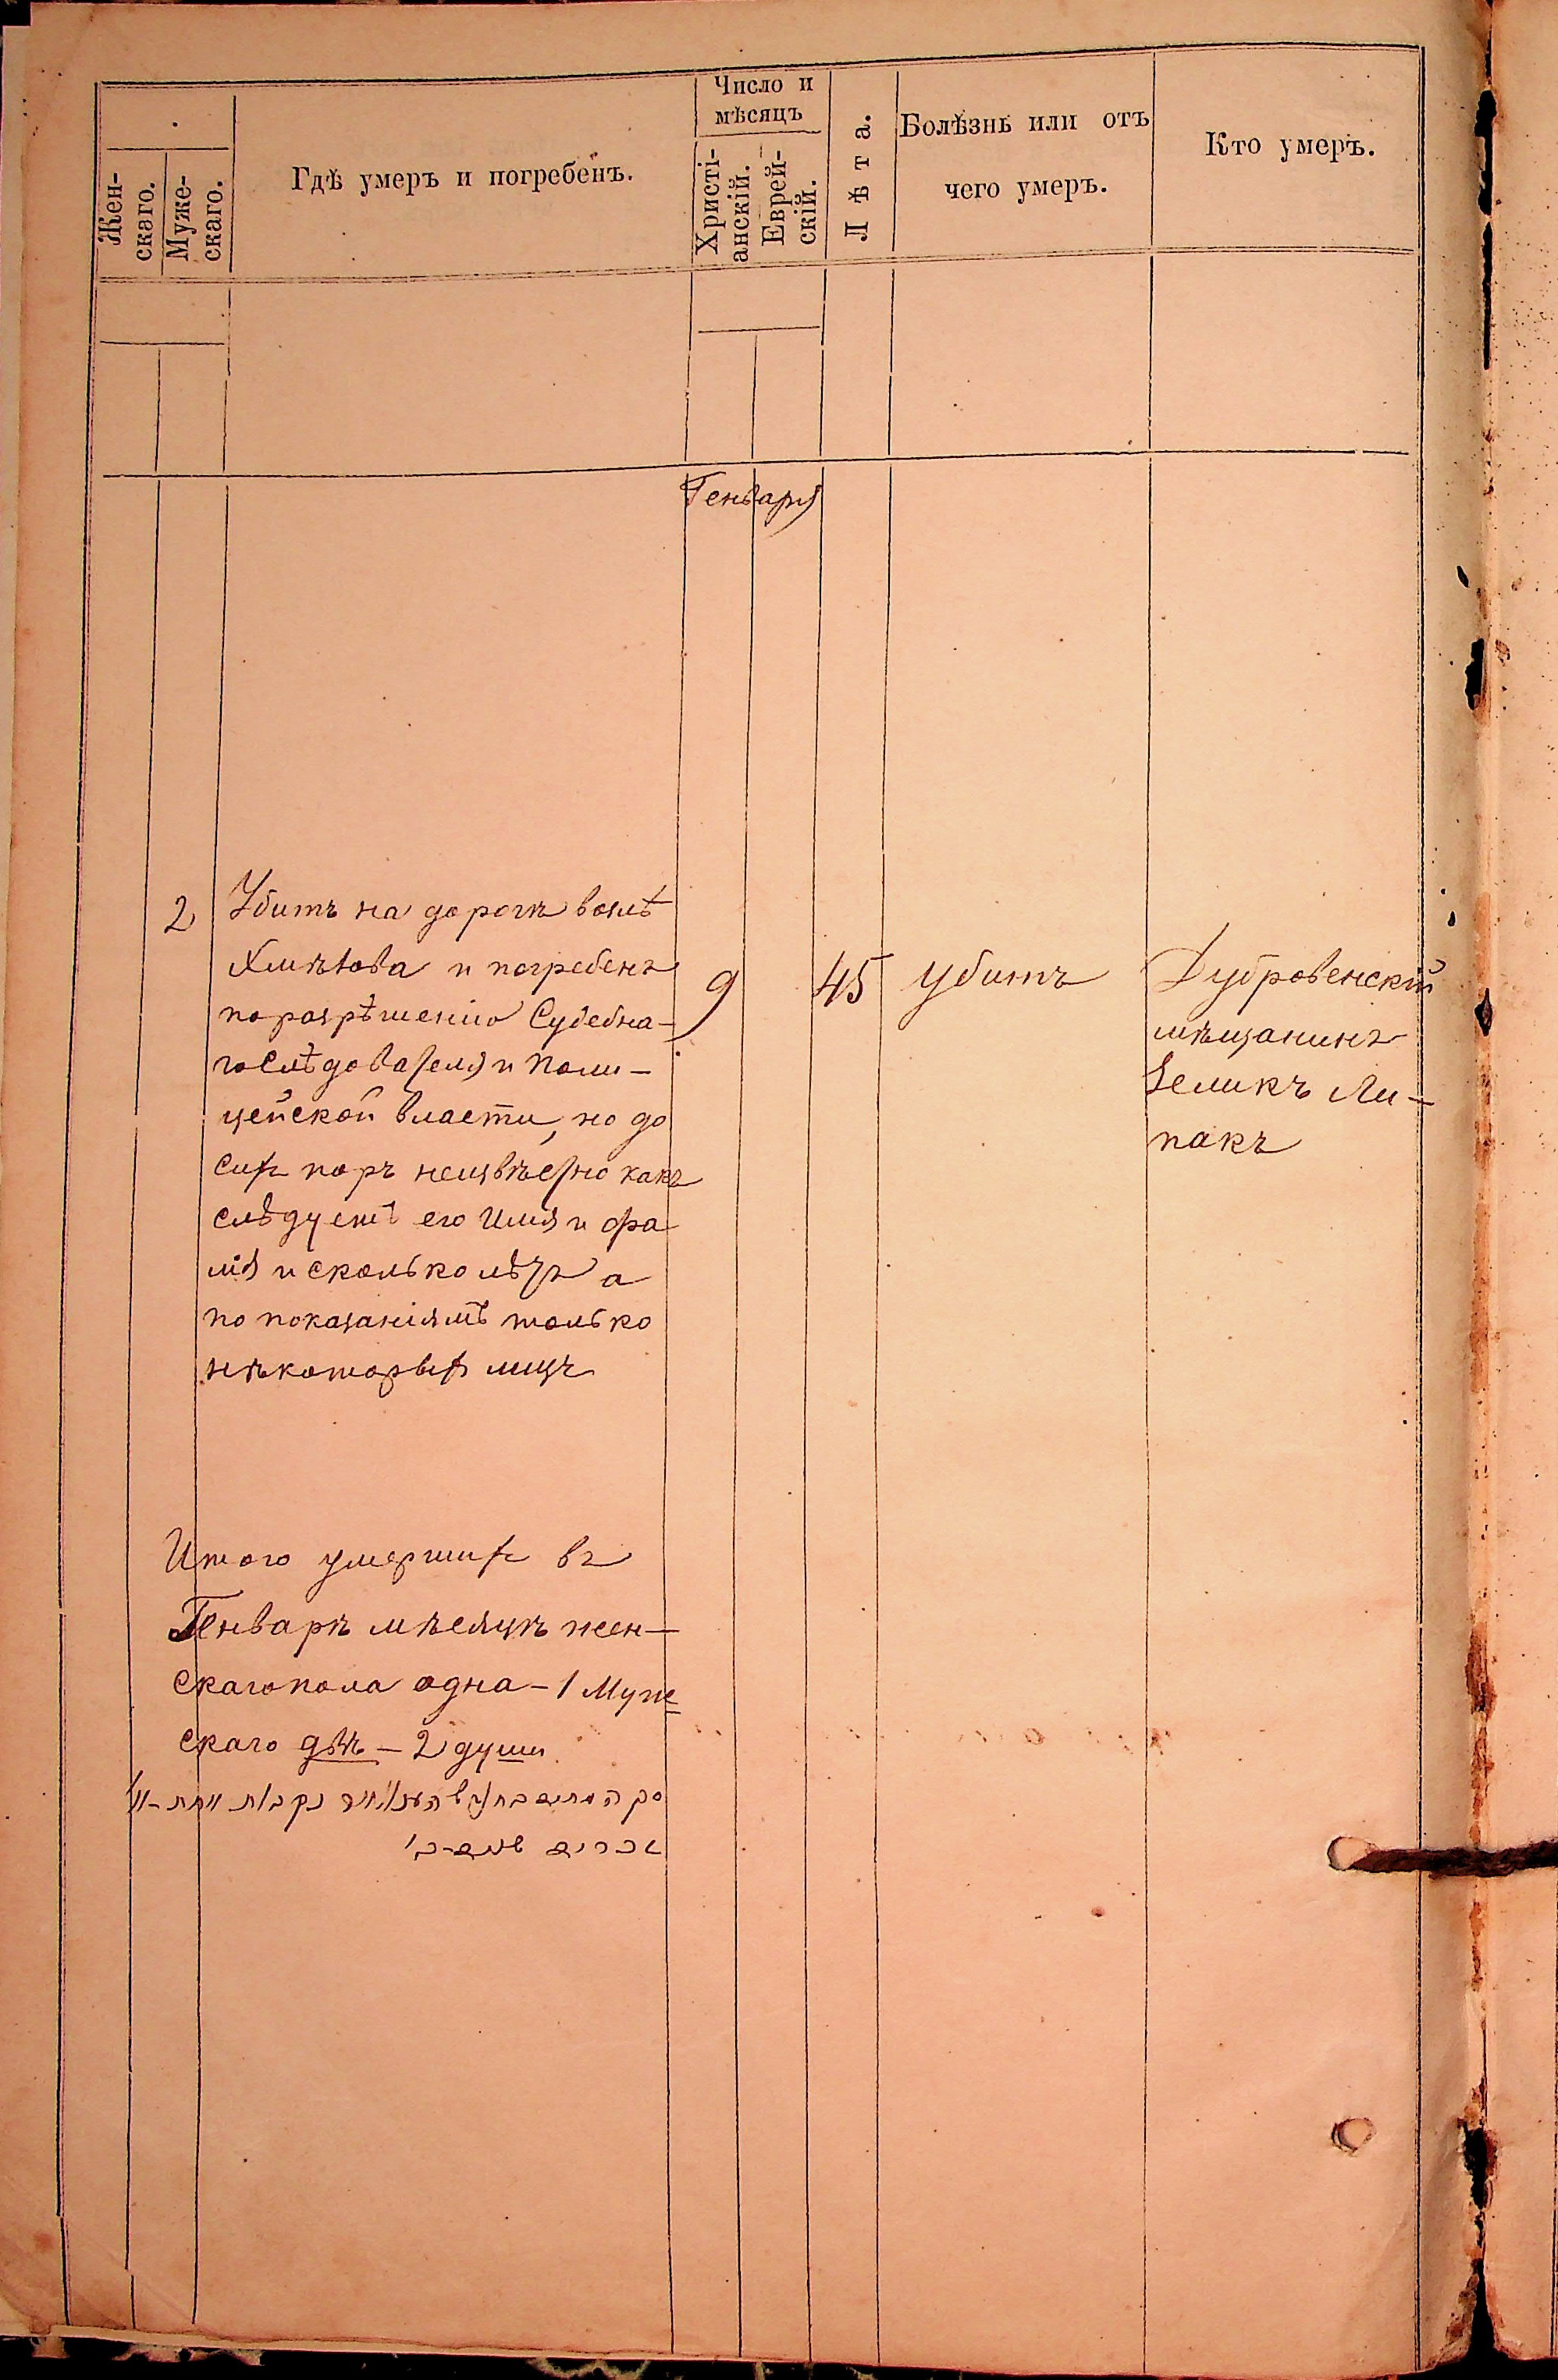 Число и
мѣсяцъ
Жен-
скаго.
Муже-
скаго.
Гдѣ умеръ и погребенъ.
Христі-
анскій.
Еврей-
скій.
Лѣта.
Болѣзнь или отъ
чего умеръ.
Кто умеръ.
Генваря
2
Убитъ на дорогѣ возлѣ
и погребенъ
по разрѣшенію Судебна-
го Слѣдователя и Поли-
цейской власти, но до
сихъ поръ неизвѣстно какъ
слѣдуетъ его Имя и фа
лія и сколько лѣтъ а
по показаніямъ только
нѣкоторыхъ лицъ
9
45
убитъ
Дубровенскій
мѣщанинъ
Зеликъ Ли-
пакъ
Итого умершихъ въ
Генварѣ мѣсяцѣ жен-
скаго пола одна - 1 Муже
скаго двѣ - 2 души